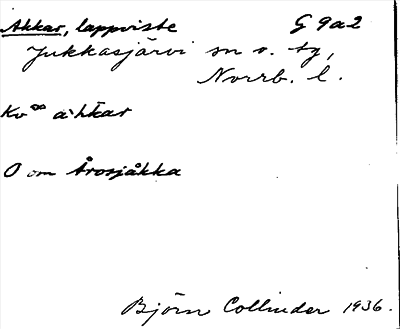 Akkar, lappviste G 9a2
Jukkasjärvi sn o. tg,
Norrb. l.
Kv∞ a·hkar
O om Årosjåkka
Björn Collinder 1936.